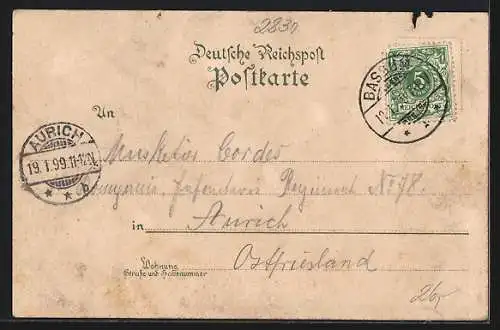 2830
Deutsche Reichspost
Postkarte
BAS
5
An
AURICH
19.1.99.11-12N
* * b
Musketier Cordes
Compagnie Infanterie Regiment No 78.
in Aurich
Ostfriesland
Wohnung
Strasse und Hausnummer